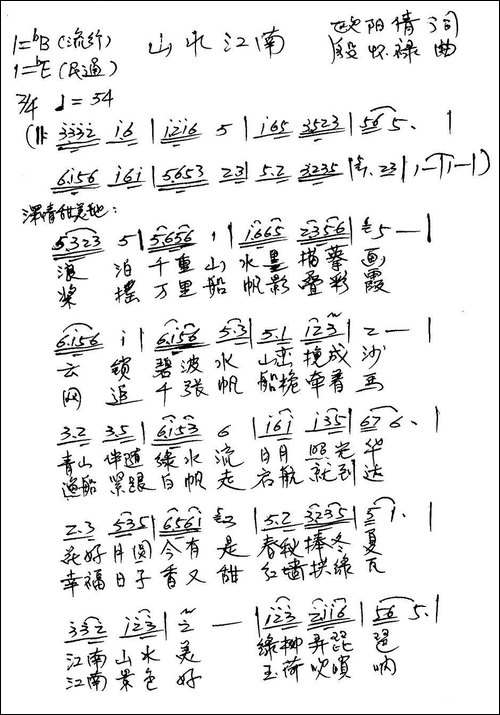 1=♭B (流行) 山水江南 欧阳倩 词
1=♭E (民通) 段怀禄 曲
2/4 ♩=54
(‖: 3332 i6 | i2i6 5 | i65 3523 | 56 5. |
6i56 i6i | 5653 23 | 5.2 3235 | 1. 23 | 1 — | 1 — | )
深情甜美地:
5323 5 | 5656 i | i665 2356 | 5 — |
浪 泊 千重山 水墨 描摹 画
桨 摇 万里船 帆影 叠彩 霞
6i56 i | 6i56 5.3 | 5.1 123 | 2 — |
云 锁 碧波水 山峦 挽成 沙
网 追 千张帆 船桅 牵着
3.2 3.5 | 6i53 6 | i6i i35 | 676. |
青山 伴随 绿水 流 日月 昭光 华
渔船 紧跟 白帆 走 启航 就到 达
2.3 535 | 656i 3 | 5.2 3235 | 5 1. |
花好月圆 今有 是 春秋 捧冬 夏
幸福日子 香又 甜 红墙拱绿 瓦
332 123 | 2 — | 123 2116 | 56 5. |
江南 山水 美 绿柳 弄琵 琶
江南 景色 好 玉荷 吹唢 呐